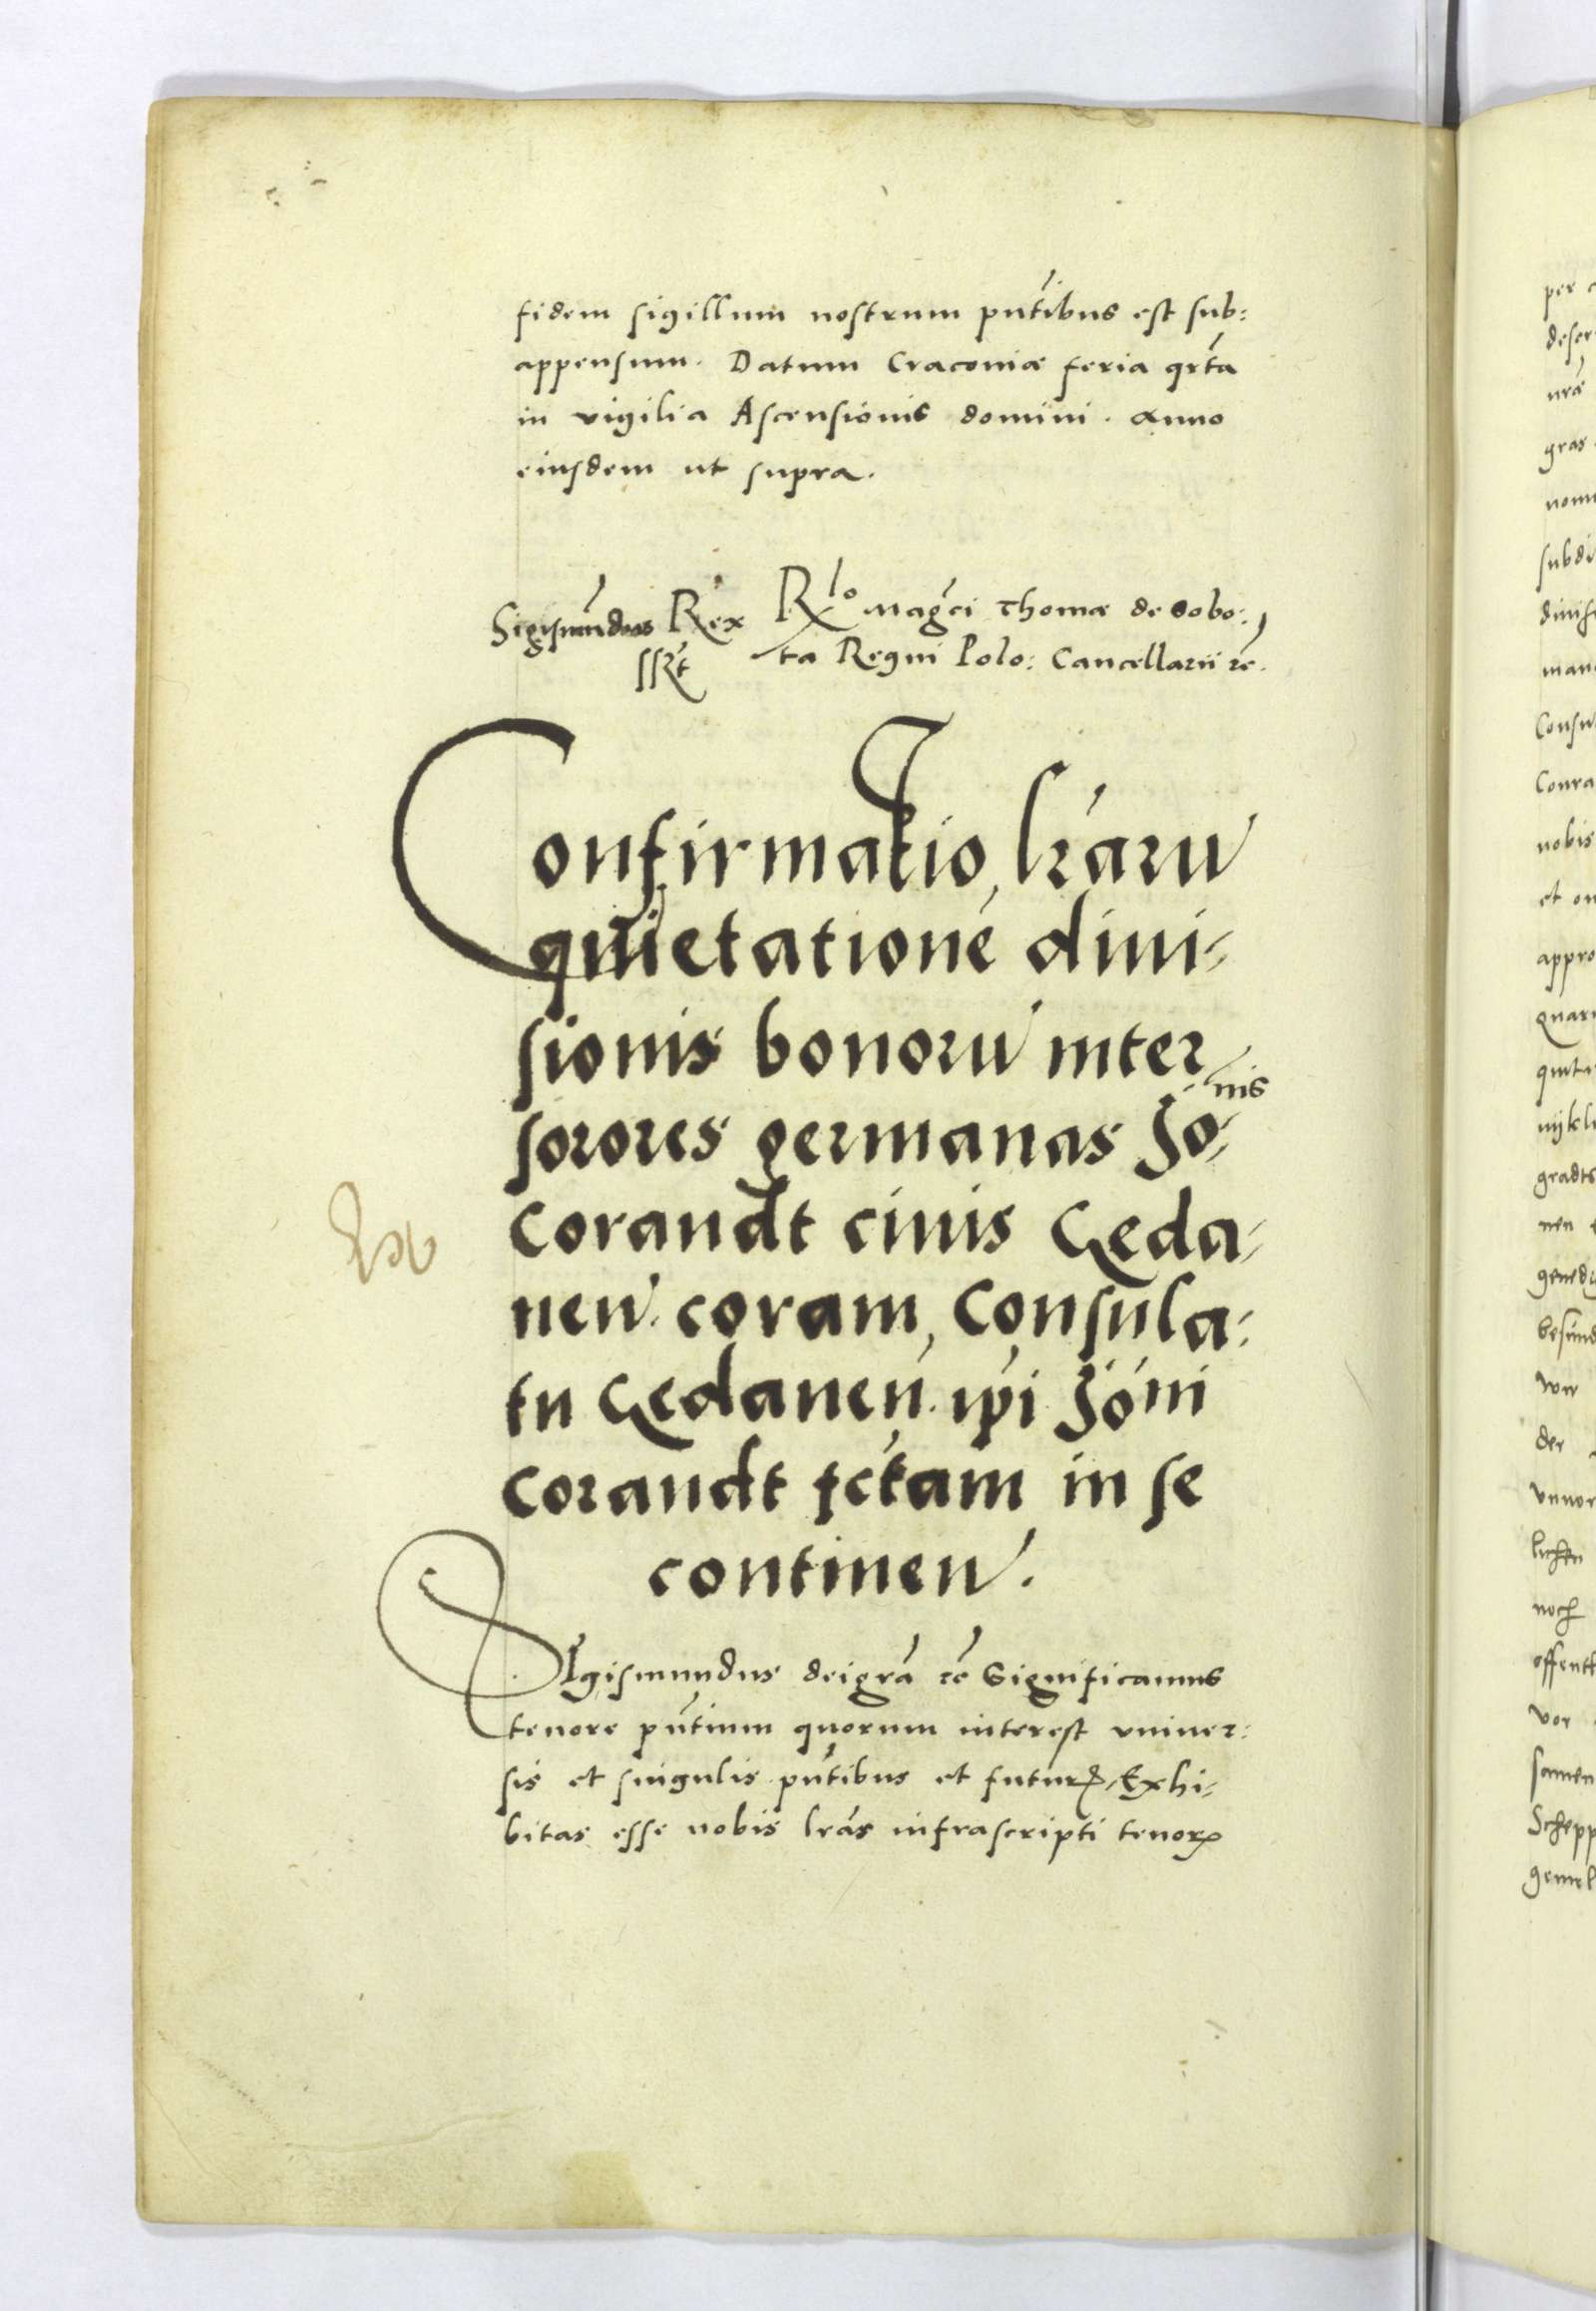 fidem sigillum nostrum pńtibus est sub:
appensum. Datum Craconiæ feria qrta
in vigilia Ascensionis domini. anno
eiusdem ut supra.
Sigismundus Rex Rlo Magci Thomæ de Sobo:
ssRt ta Regni Polo: Cancellarii rē.
Confirmatio lrarū
quietationē diui-
sionis bonorū inter
sorores germanas Jo-nis
Corandt ciuis Geda-
nen. coram Consula:
tu Gedanen. ipi Joni
Corandt fctam in se
continen.
SIgismundus dei gra rē Significamus
tenore pńtium quorum interest vniuer:
sis et singulis pńtibus et futurꝭ. Exhi-
bitas esse nobis lras infrascripti tenorꝭ
per
deser
nrē
gras
nom
subdi
diuis
man
Consu
Conra
nobis
et om
appro
quar
gradts
nen
gened
besund
wir
der
vnuor
noch
offent
vor
samen
Schepp
gemel